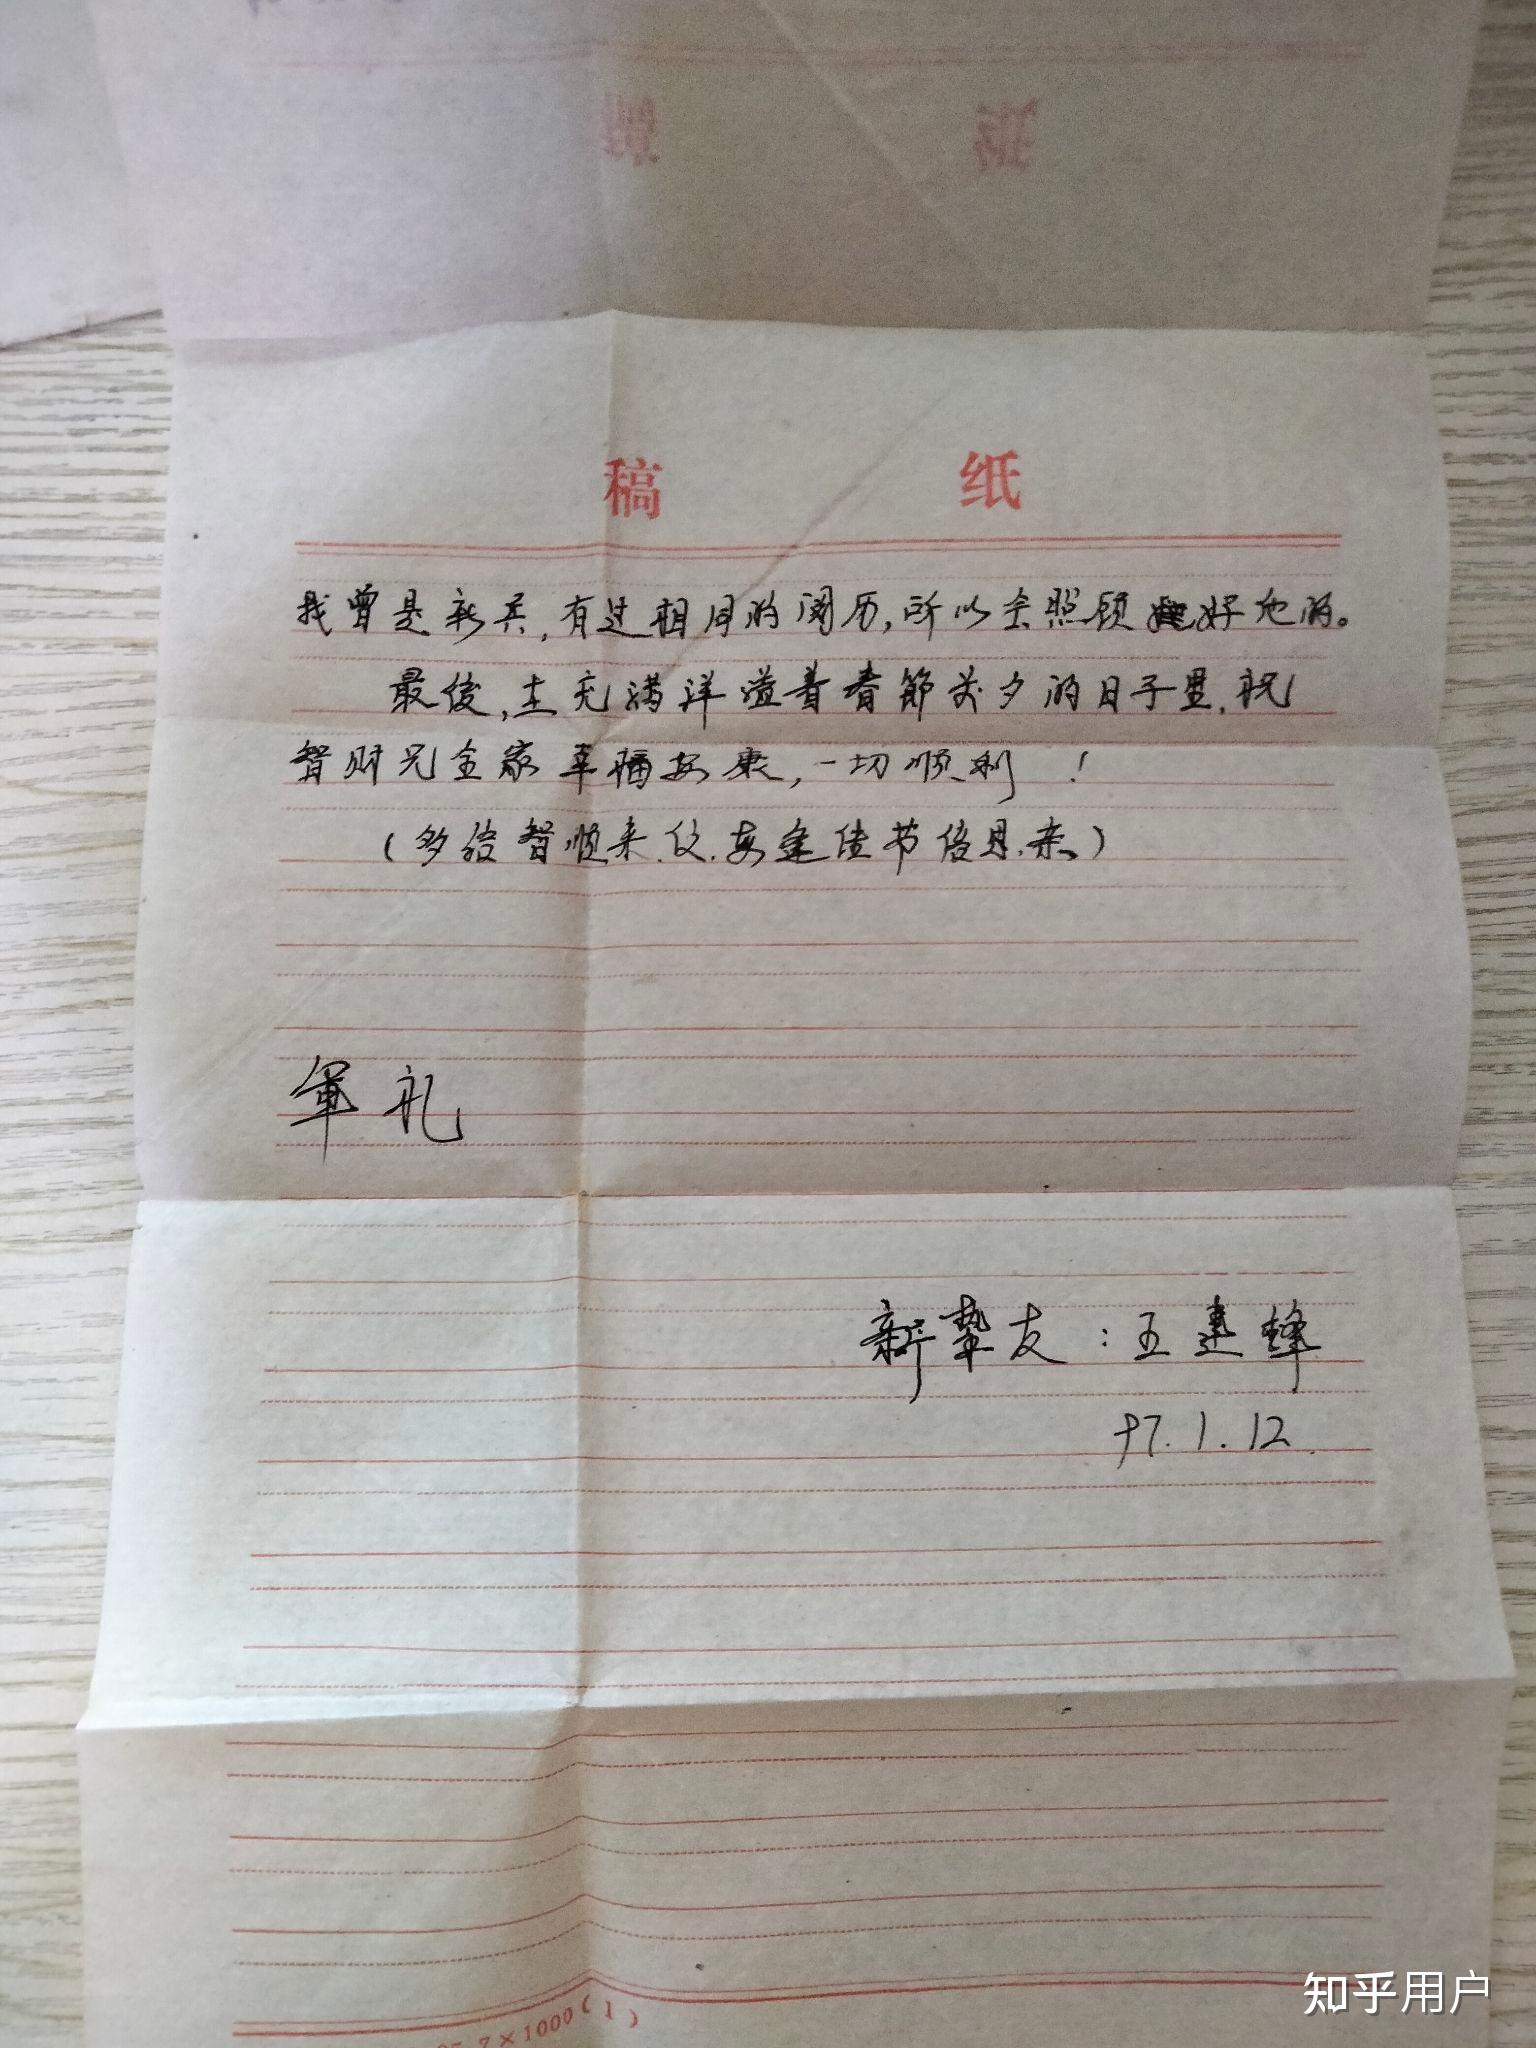 稿 纸
我曾是新兵,有过相同的阅历,所以会照顾好他的。
最后,在充满洋溢着春節前夕的日子里,祝
智财兄全家幸福安康,一切顺利!
(多给智顺来信,每逢佳节倍思亲)
軍礼
新挚友:王建锋
97.1.12.
7×1000(1)
知乎用户